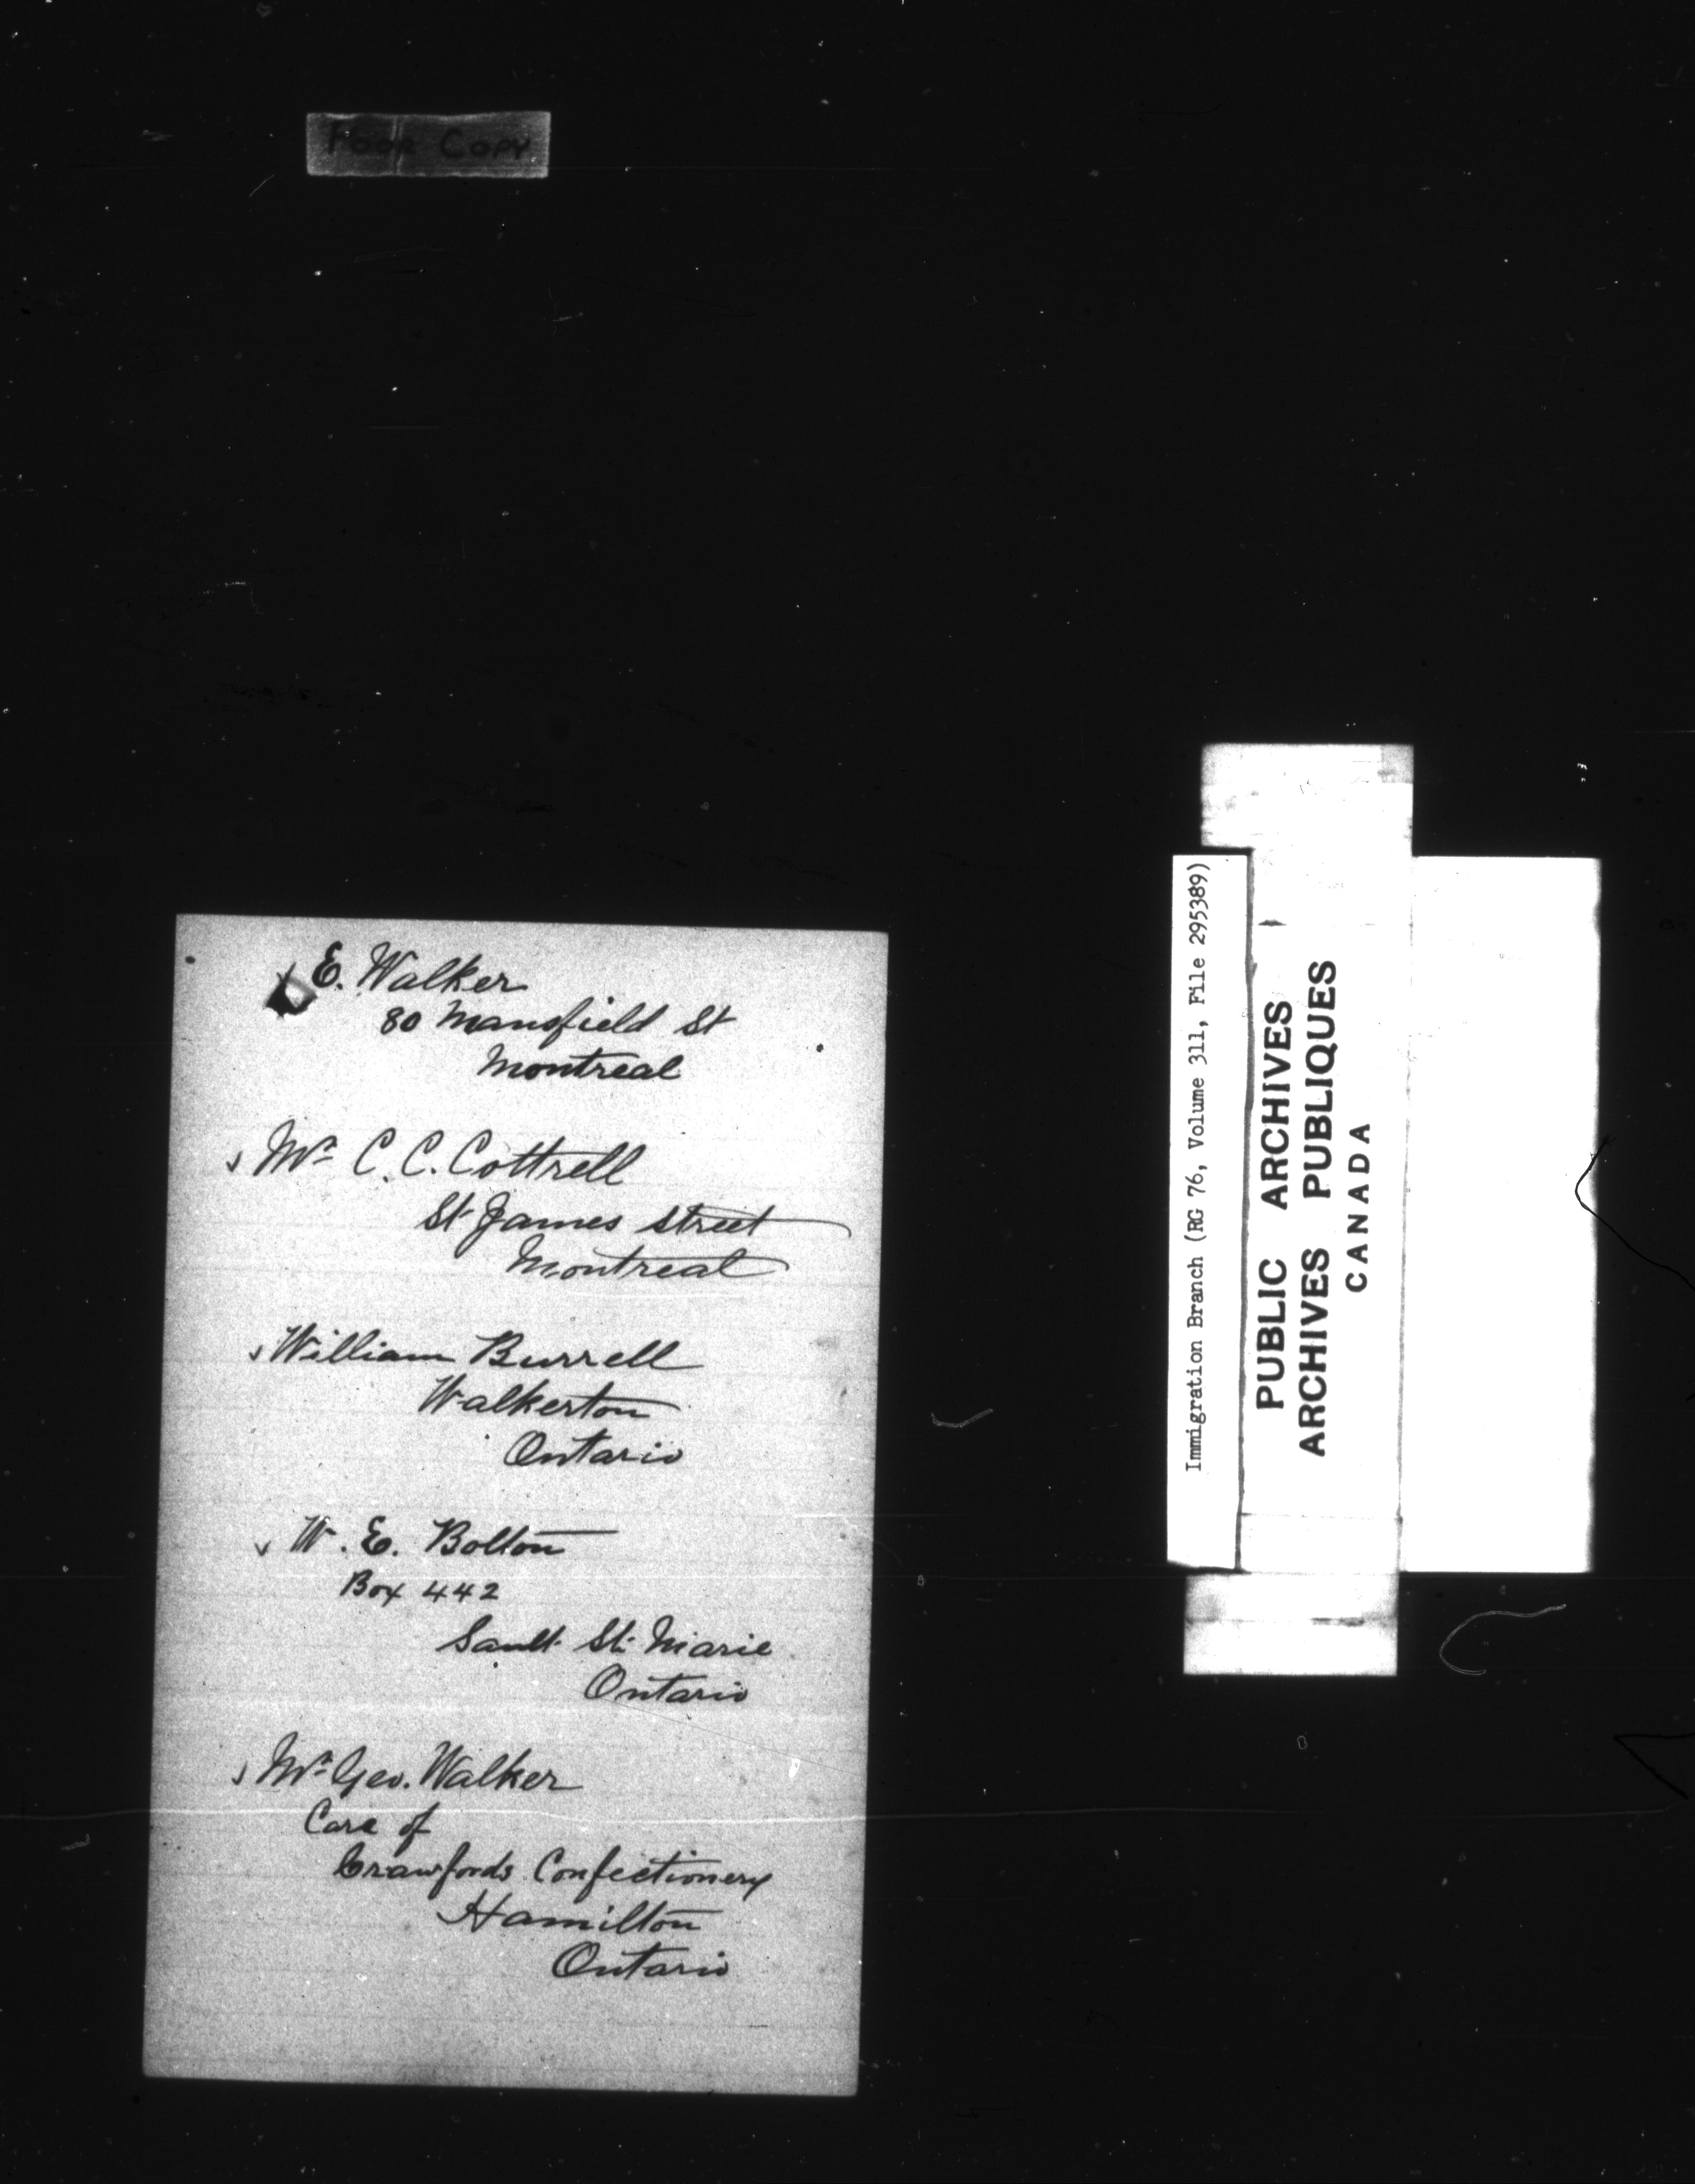 Poor Copy
E. Walker
80 Mansfield St
Montreal
Mr C. C. Cottrell
St James street
Montreal
William Burrell
Walkerton
Ontario
W. E. Bolton
Box 442
Sault St. Marie
Ontario
Mr Geo. Walker
Care of
Crawfords Confectionery
Hamilton
Ontario
Immigration Branch (RG 76, Volume 311, File 295389)
PUBLIC ARCHIVES
ARCHIVES PUBLIQUES
CANADA